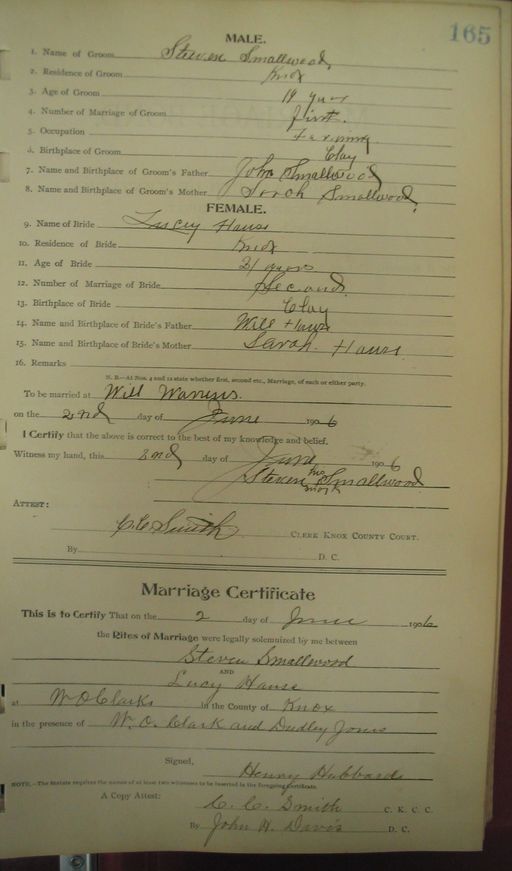 165
MALE.
1. Name of Groom Steven Smallwood
2. Residence of Groom Knox
3. Age of Groom 19 years
4. Number of Marriage of Groom first.
5. Occupation Farming
6. Birthplace of Groom Clay
7. Name and Birthplace of Groom's Father John Smallwood
8. Name and Birthplace of Groom's Mother Smallwood
FEMALE.
9. Name of Bride
10. Residence of Bride Knox
11. Age of Bride 21 years
12. Number of Marriage of Bride Second
13. Birthplace of Bride Clay
14. Name and Birthplace of Bride's Father Will
15. Name and Birthplace of Bride's Mother Sarah.
16. Remarks
N. B—At Nos. 4 and 12 state whether first, second etc., Marriage, of each or either party.
To be married at Will
on the 2nd day of June 1906
I Certify that the above is correct to the best of my knowledge and belief.
Witness my hand, this 2nd day of June 1906
his
Steven Smallwood
mark
ATTEST:
C.C. Smith CLERK KNOX COUNTY COURT.
By D. C.
Marriage Certificate
This is to Certify That on the 2 day of June 1906
the Rites of Marriage were legally solemnized by me between
Steven Smallwood
AND
Lucy Hause
at W O Clarks in the County of Knox
in the presence of W. O. Clark and Dudley Jones
Signed,
Henry Hubbards
NOTE.—The Statute requires the names of at least two witnesses to be inserted in the foregoing Certificate.
A Copy Attest: C. C. Smith C. K. C. C.
By John H. Davis D. C.